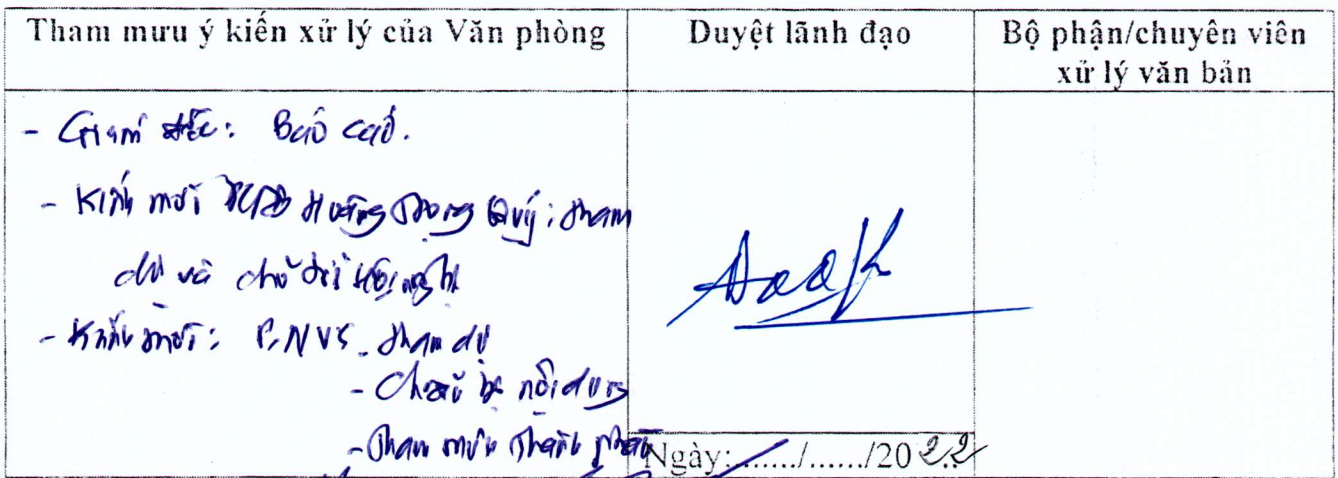 Tham mưu ý kiến xử lý của Văn phòng
Duyệt lãnh đạo
Bộ phận/chuyên viên
xử lý văn bản
- Giám đốc: Báo cáo.
- Kính mời PGĐ Hoàng Trọng Quý: tham
dự và chủ trì Hội nghị
- Kính mời: P.NVS - tham dự
- Chuẩn bị nội dung
- Tham mưu thành phần
Ngày:....../....../2022